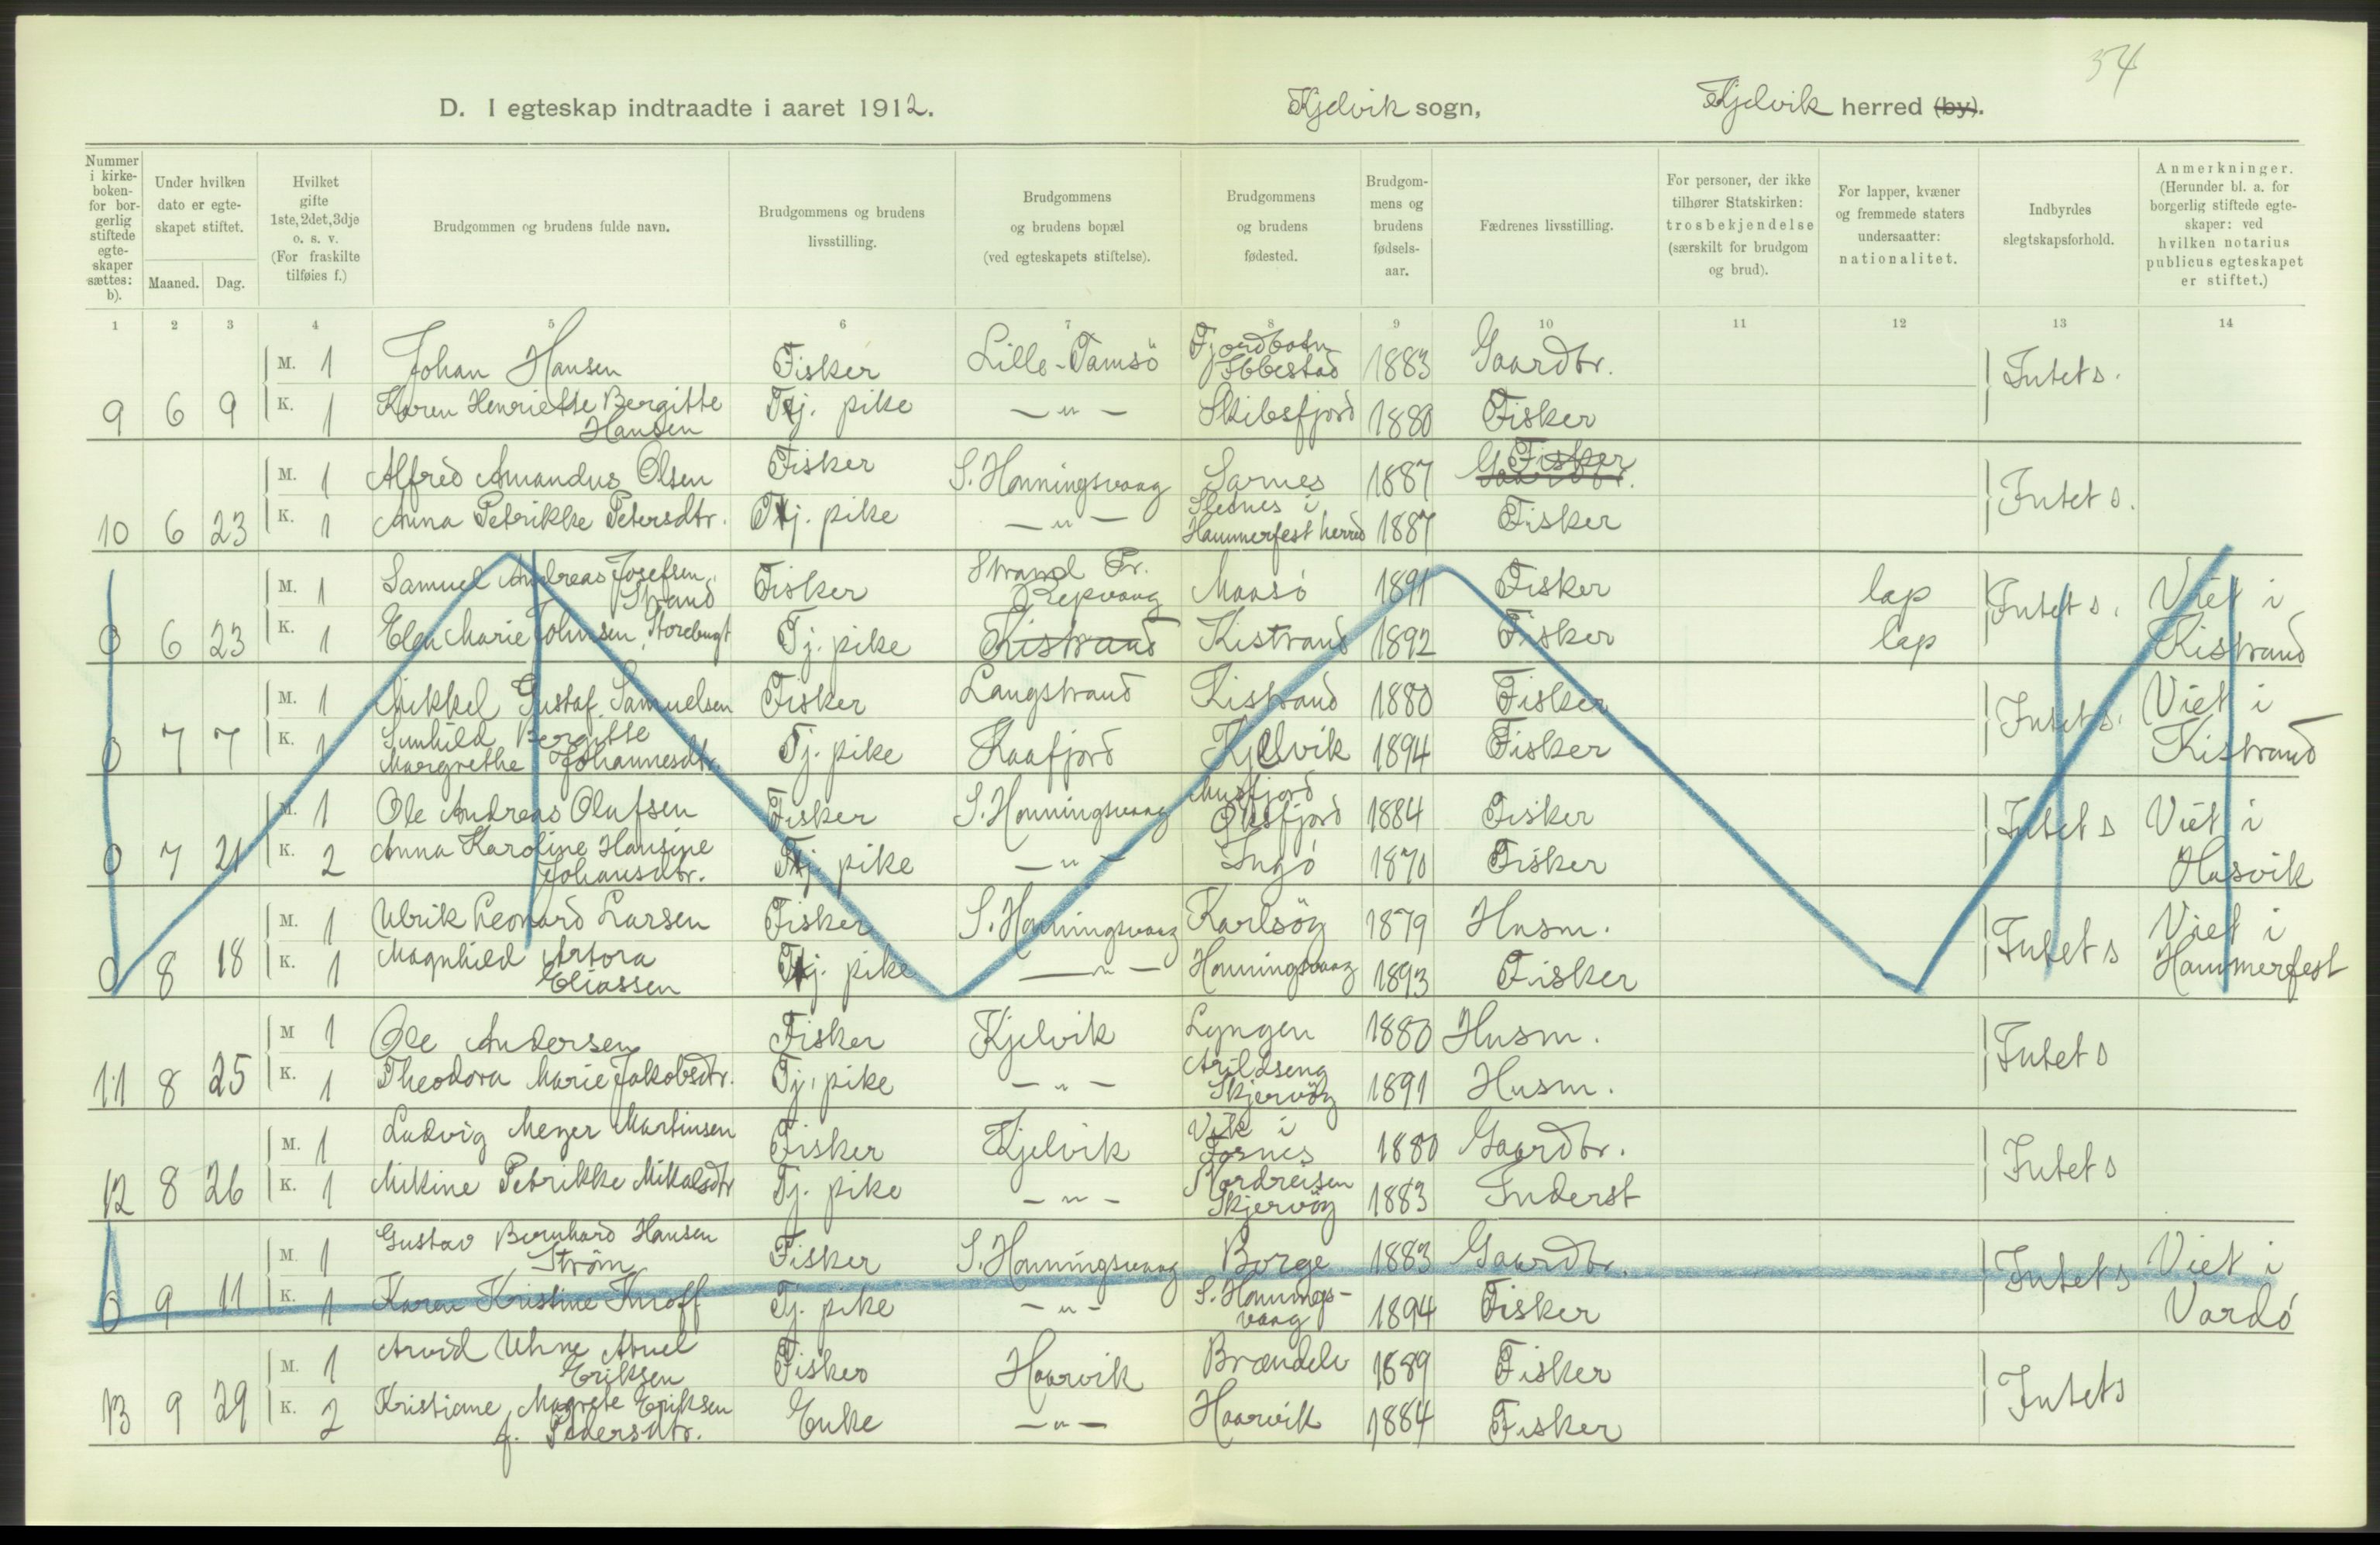 34
D. I egteskap indtraadte i aaret 1912. Kjelvik sogn, Kjelvik herred (by).
Nummer i kirkeboken- for borgerlig stiftede egteskaper sættes: b).
Under hvilken dato er egteskapet stiftet.
Maaned. Dag.
Hvilket gifte 1ste, 2det, 3dje o. s. v. (For fraskilte tilføies f.)
Brudgommen og brudens fulde navn.
Brudgommens og brudens livsstilling.
Brudgommens og brudens bopæl (ved egteskapets stiftelse).
Brudgommens og brudens fødested.
Brudgommens og brudens fødselsaar.
Fædrenes livsstilling.
For personer, der ikke tilhører Statskirken: trosbekjendelse (særskilt for brudgom og brud).
For lapper, kvæner og fremmede staters undersaatter: nationalitet.
Indbyrdes slegtskapsforhold.
Anmerkninger. (Herunder bl. a. for borgerlig stiftede egteskaper: ved hvilken notarius publicus egteskapet er stiftet.)
1 2 3 4 5 6 7 8 9 10 11 12 13 14
M. 1 Johan Hansen Fisker Lille-Tamsö Fjordbotn Ibbestad 1883 Gaardbr. Intets.
9 6 9 K. 1 Karen Henriette Bergitte Hansen Tj. pike — " — Skibsfjord 1880 Fisker
M. 1 Alfred Amandus Olsen Fisker S. Honningsvaag Sarnes 1887 Gaardbr. Fisker Intets.
10 6 23 K. 1 Anna Petrikke Petersdtr. Tj. pike — " — Slednes i Hammerfest herred 1887 Fisker
M. 1 Samuel Andreas Josefsen Strand Fisker Strand Pr. Repvaag Maasö 1891 Fisker lap Intets. Viet i
0 6 23 K. 1 Elen Marie Johnsen, Storebugt Tj. pike Kistrand Kistrand 1892 Fisker lap Kistrand
M. 1 Mikkel Gustaf Samuelsen Fisker Langstrand Kistrand 1880 Fisker Intets. Viet i
0 7 7 K. 1 Gunhild Bergitte Margrethe Johannesdtr. Tj. pike Kaafjord Kjelvik 1894 Fisker Kistrand
M. 1 Ole Andreas Olufsen Fisker S. Honningsvaag Ausfjord Öksfjord 1884 Fisker Intets Viet i
0 7 21 K. 2 Anna Karoline Hansine Johansdtr. Tj pike — " — Ingö 1870 Fisker Hasvik
M. 1 Ulrik Leonard Larsen Fisker S. Honningsvaag Karlsöy 1879 Husm. Intets Viet i
0 8 18 K. 1 Magnhild Artora Eliassen Tj. pike — " — Honningsvaag 1893 Fisker Hammerfest
M 1 Ole Andersen Fisker Kjelvik Lyngen 1880 Husm. Intets
11 8 25 K. 1 Theodora Marie Jakobsdtr. Tj. pike — " — Arildseng Skjervöy 1891 Husm.
M. 1 Ludvig Meyer Martinsen Fisker Kjelvik Vik i Fosnes 1880 Gaardbr. Intets
12 8 26 K. 1 Mikine Petrikke Mikalsdtr Tj. pike — " — Nordreisen Skjervöy 1883 Inderst
M. 1 Gustav Bernhard Hansen Ström Fisker S. Honningsvaag Borge 1883 Gaardbr. Intets Viet i
0 9 11 K. 1 Karen Kristine Knoff Tj. pike — " — S. Honningsvaag 1894 Fisker Vardö
M. 1 Arvid Eriksen Fisker Haarvik Brændelv 1889 Fisker Intets
13 9 29 K. 2 Kristiane Magrete Eriksen f. Pedersdtr. Enke — " — Haarvik 1884 Fisker